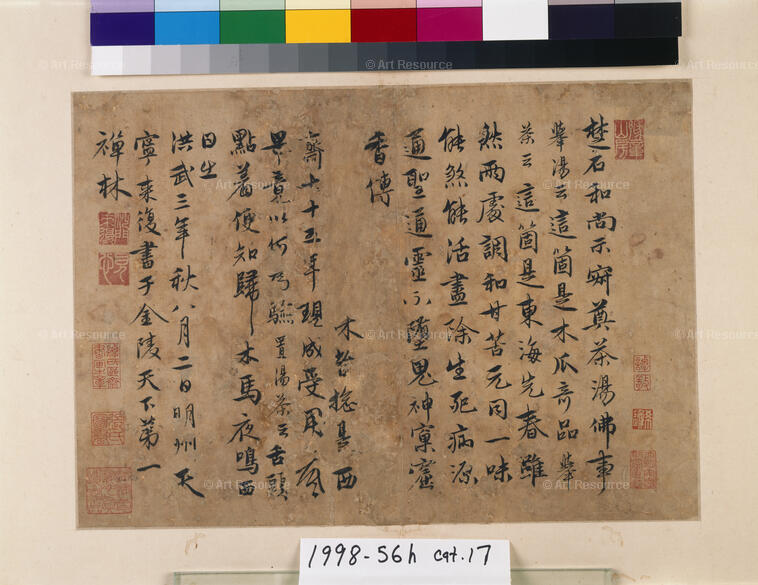 楚石和尚示寂奠茶湯佛事
舉湯云這箇是木瓜奇品舉
茶云這箇是東海先春雖
然兩處調和甘苦元同一味
能煞能活盡除生死病源
通聖通靈不墮鬼神窠窟
香傳
木揔是西
齋七十五年現成受用底
畢竟以何為驗置湯茶云舌頭
點著便知歸木馬夜鳴西
日出
洪武三年秋八月二日明州天
寧来復書于金陵天下第一
禪林
1998-56h cat.17
© Art Resource